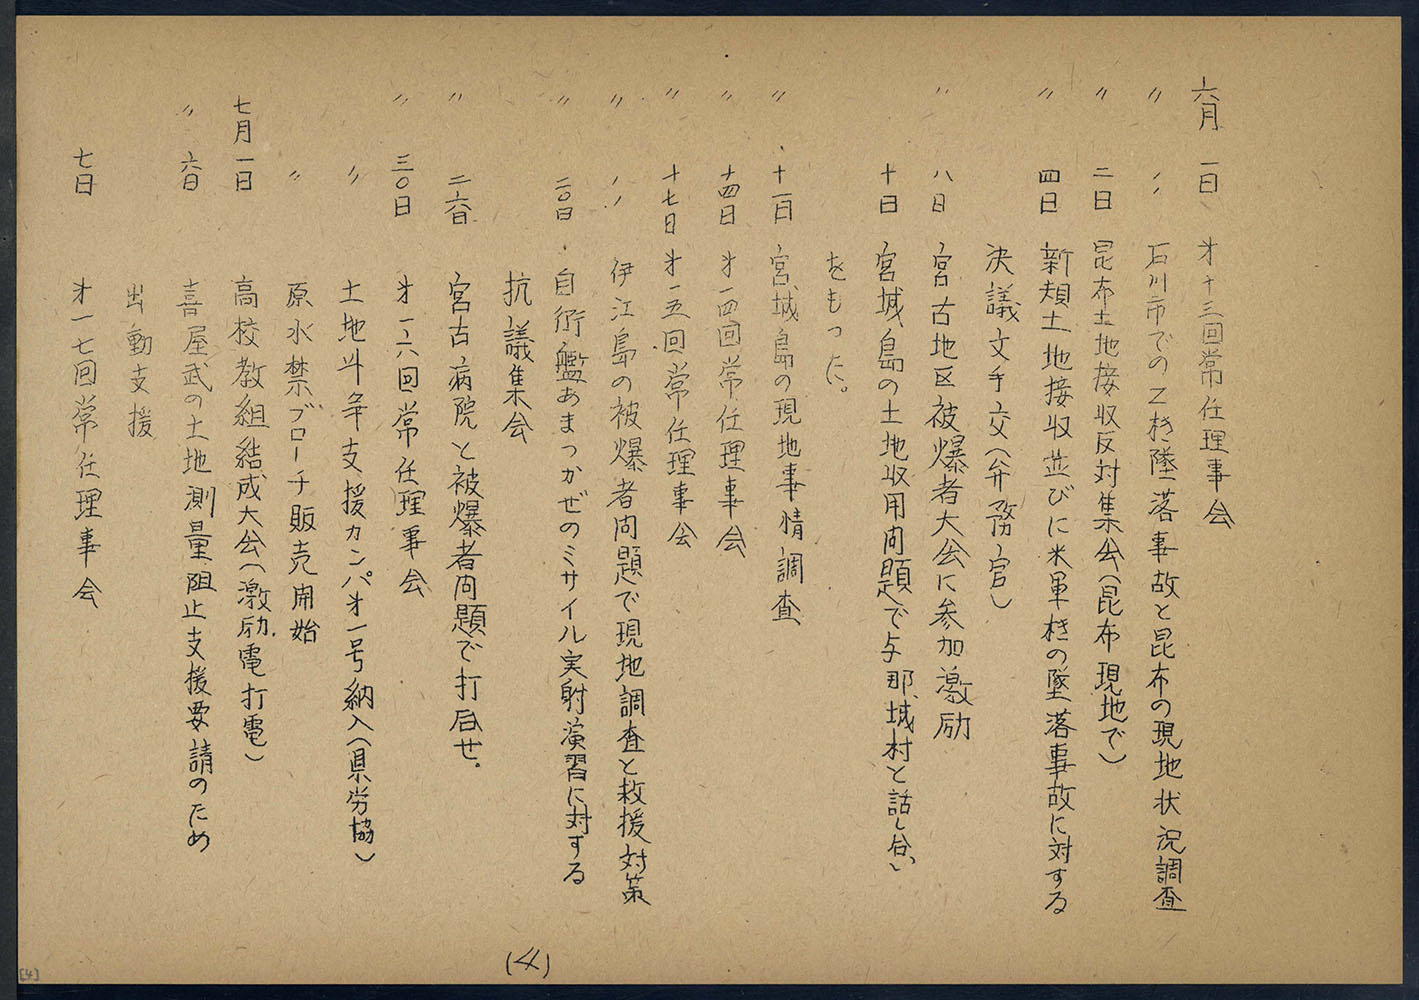 六月 一日 才十三回常任理事会
〃 〃 石川市でのZ機墜落事故と昆布の現地状況調査
〃 二日 昆布土地接収反対集会(昆布現地で)
〃 四日 新規土地接収並びに米軍機の墜落事故に対する
決議文手交(弁務官)
〃 八日 宮古地区被爆者大会に参加激励
十日 宮城島の土地収用問題で与那城村と話し合い
をもった。
〃 十一日 宮城島の現地事情調査
〃 十四日 才一四回常任理事会
〃 十七日 才一五回常任理事会
〃 〃 伊江島の被爆者問題で現地調査と救援対策
〃 二〇日 自衛艦あまつかぜのミサイル実射演習に対する
抗議集会
〃 二六日 宮古病院と被爆者問題で打合せ。
〃 三〇日 才一六回常任理事会
〃 土地斗争支援カンパ才一号納入(県労協)
〃 原水禁ブローチ販売開始
七月一日 高校教組結成大会(激励電打電)
〃 六日 喜屋武の土地測量阻止支援要請のため
出動支援
七日 才一七回常任理事会
(4)
[4]